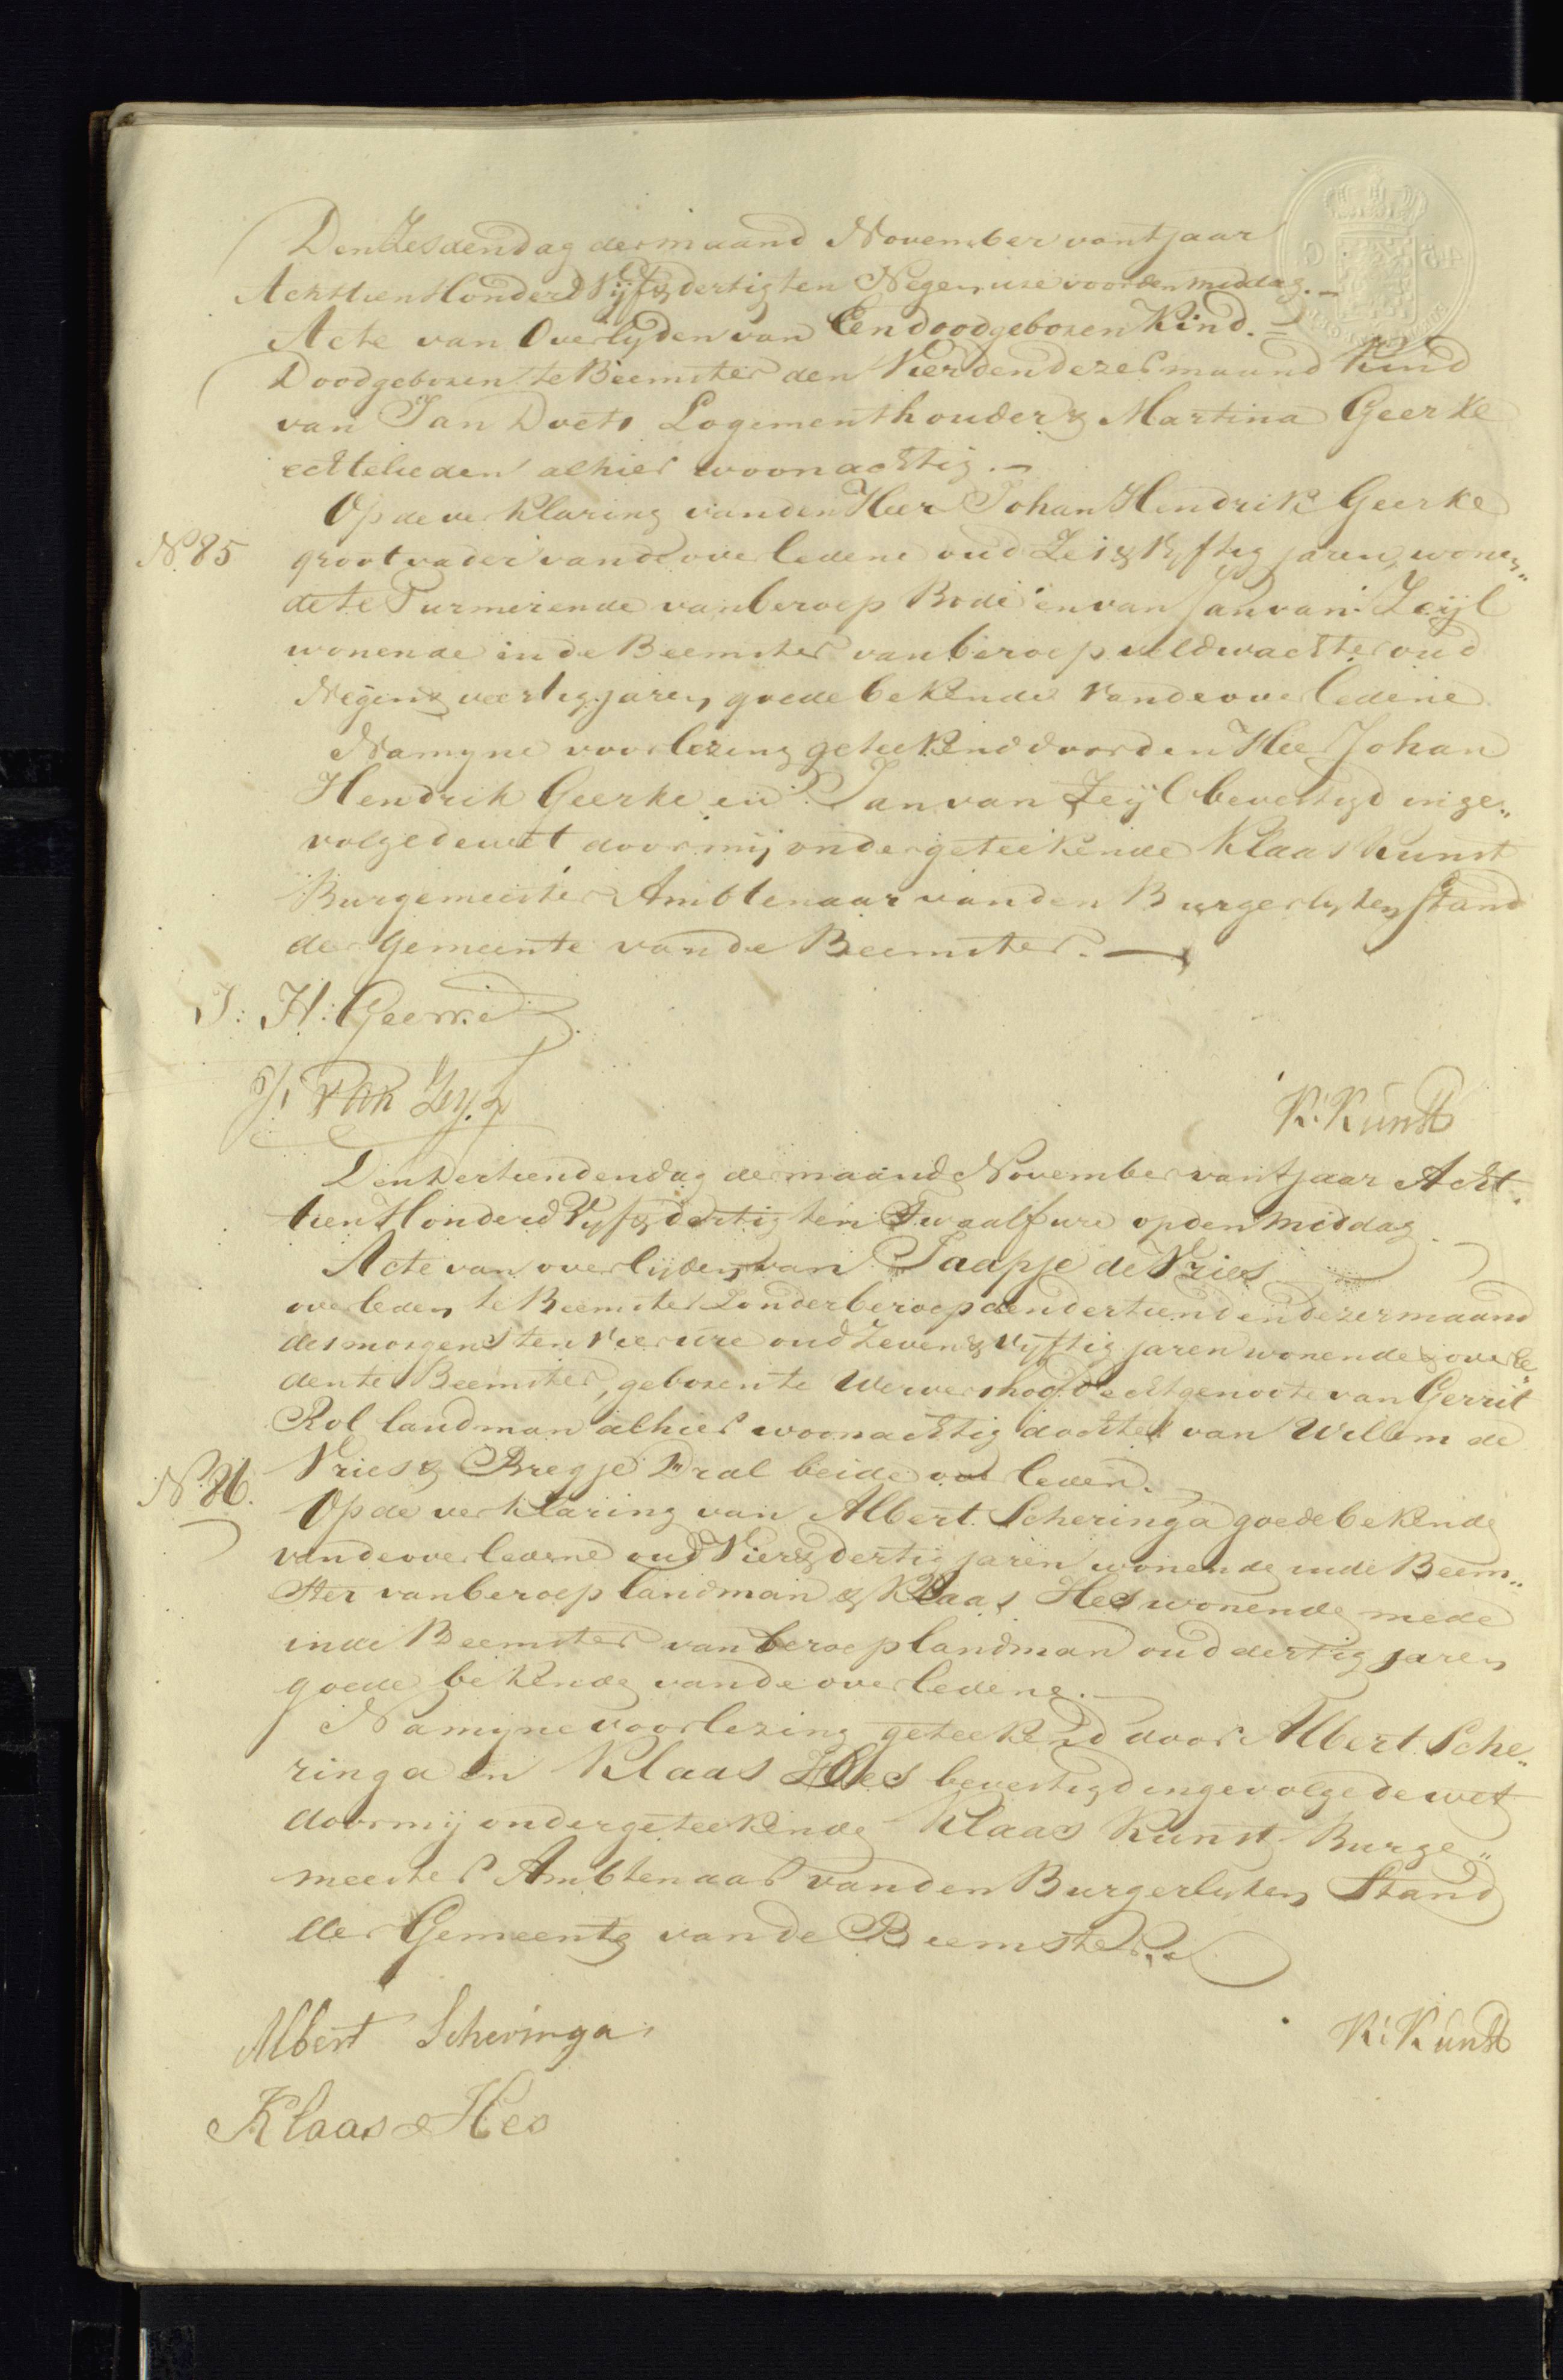 Den Zesden dag der maand November van t jaar
Achttien Honderd Vijf & dertig ten Negen ure voor den middag.
Acte van Overlyden van Een doodgeboren Kind.
Doodgeboren te Beemster den Vierden dezer maand Kind
van Jan Doets Logementhouder & Martina Geerke
echtelieden alhier woonachtig.
Op de verklaring van den Heer Johan Hendrik Geerke
N. 85
grootvader van de overledene oud Zes & Vyftig jaren, wonen„
de te Purmerende van beroep Bode en van Jan van Zeijl
wonende in de Beemster van beroep veldwachter oud
Negen & veertig jaren goede bekende van de overledene
Na myne voorlezing geteekend door den Heer Johan
Hendrik Geerke en Jan van Zeijl bevestigd inge„
volge de wet door mij ondergeteekende Klaas Kunst
Burgemeester Ambtenaar van den Burgerlyken Stand
der Gemeente van de Beemster.
J: H: Geerke
J: Van Zyl
K: Kunst
Den Dertienden dag der maand November van t jaar Acht
tien Honderd Vyf & dertig ten Twaalf ure op den Middag
Acte van overlijden van Jaapje de Vries
overleden te Beemster Zonder beroep den dertienden dezer maand
des morgens ten vier ure oud Zeven & Vyftig jaren wonende & overle„
den te Beemster, geboren te Wervershoof echtgenoote van Gerrit
Rol landman alhier woonachtig dochter van Willem de
N. 86.
Vries & Bregje Dral beide overleden.
Op de verklaring van Albert Scheringa goede bekende
van de overledene oud Vier & dertig jaren wonende in de Beem„
ster van beroep landman & Klaas Hes wonende mede
in de Beemster van beroep landman oud dertig jaren
goede bekende van de overledene.
Na mijne voorlezing geteekend door Albert Sche„
ringa en Klaas Hes bevestigd ingevolge de wet
door mij ondergeteekende Klaas Kunst Burge„
meester Ambtenaar van den Burgerlyken Stand
der Gemeente van de Beemster.
Albert Scheringa
K: Kunst
Klaas Hes